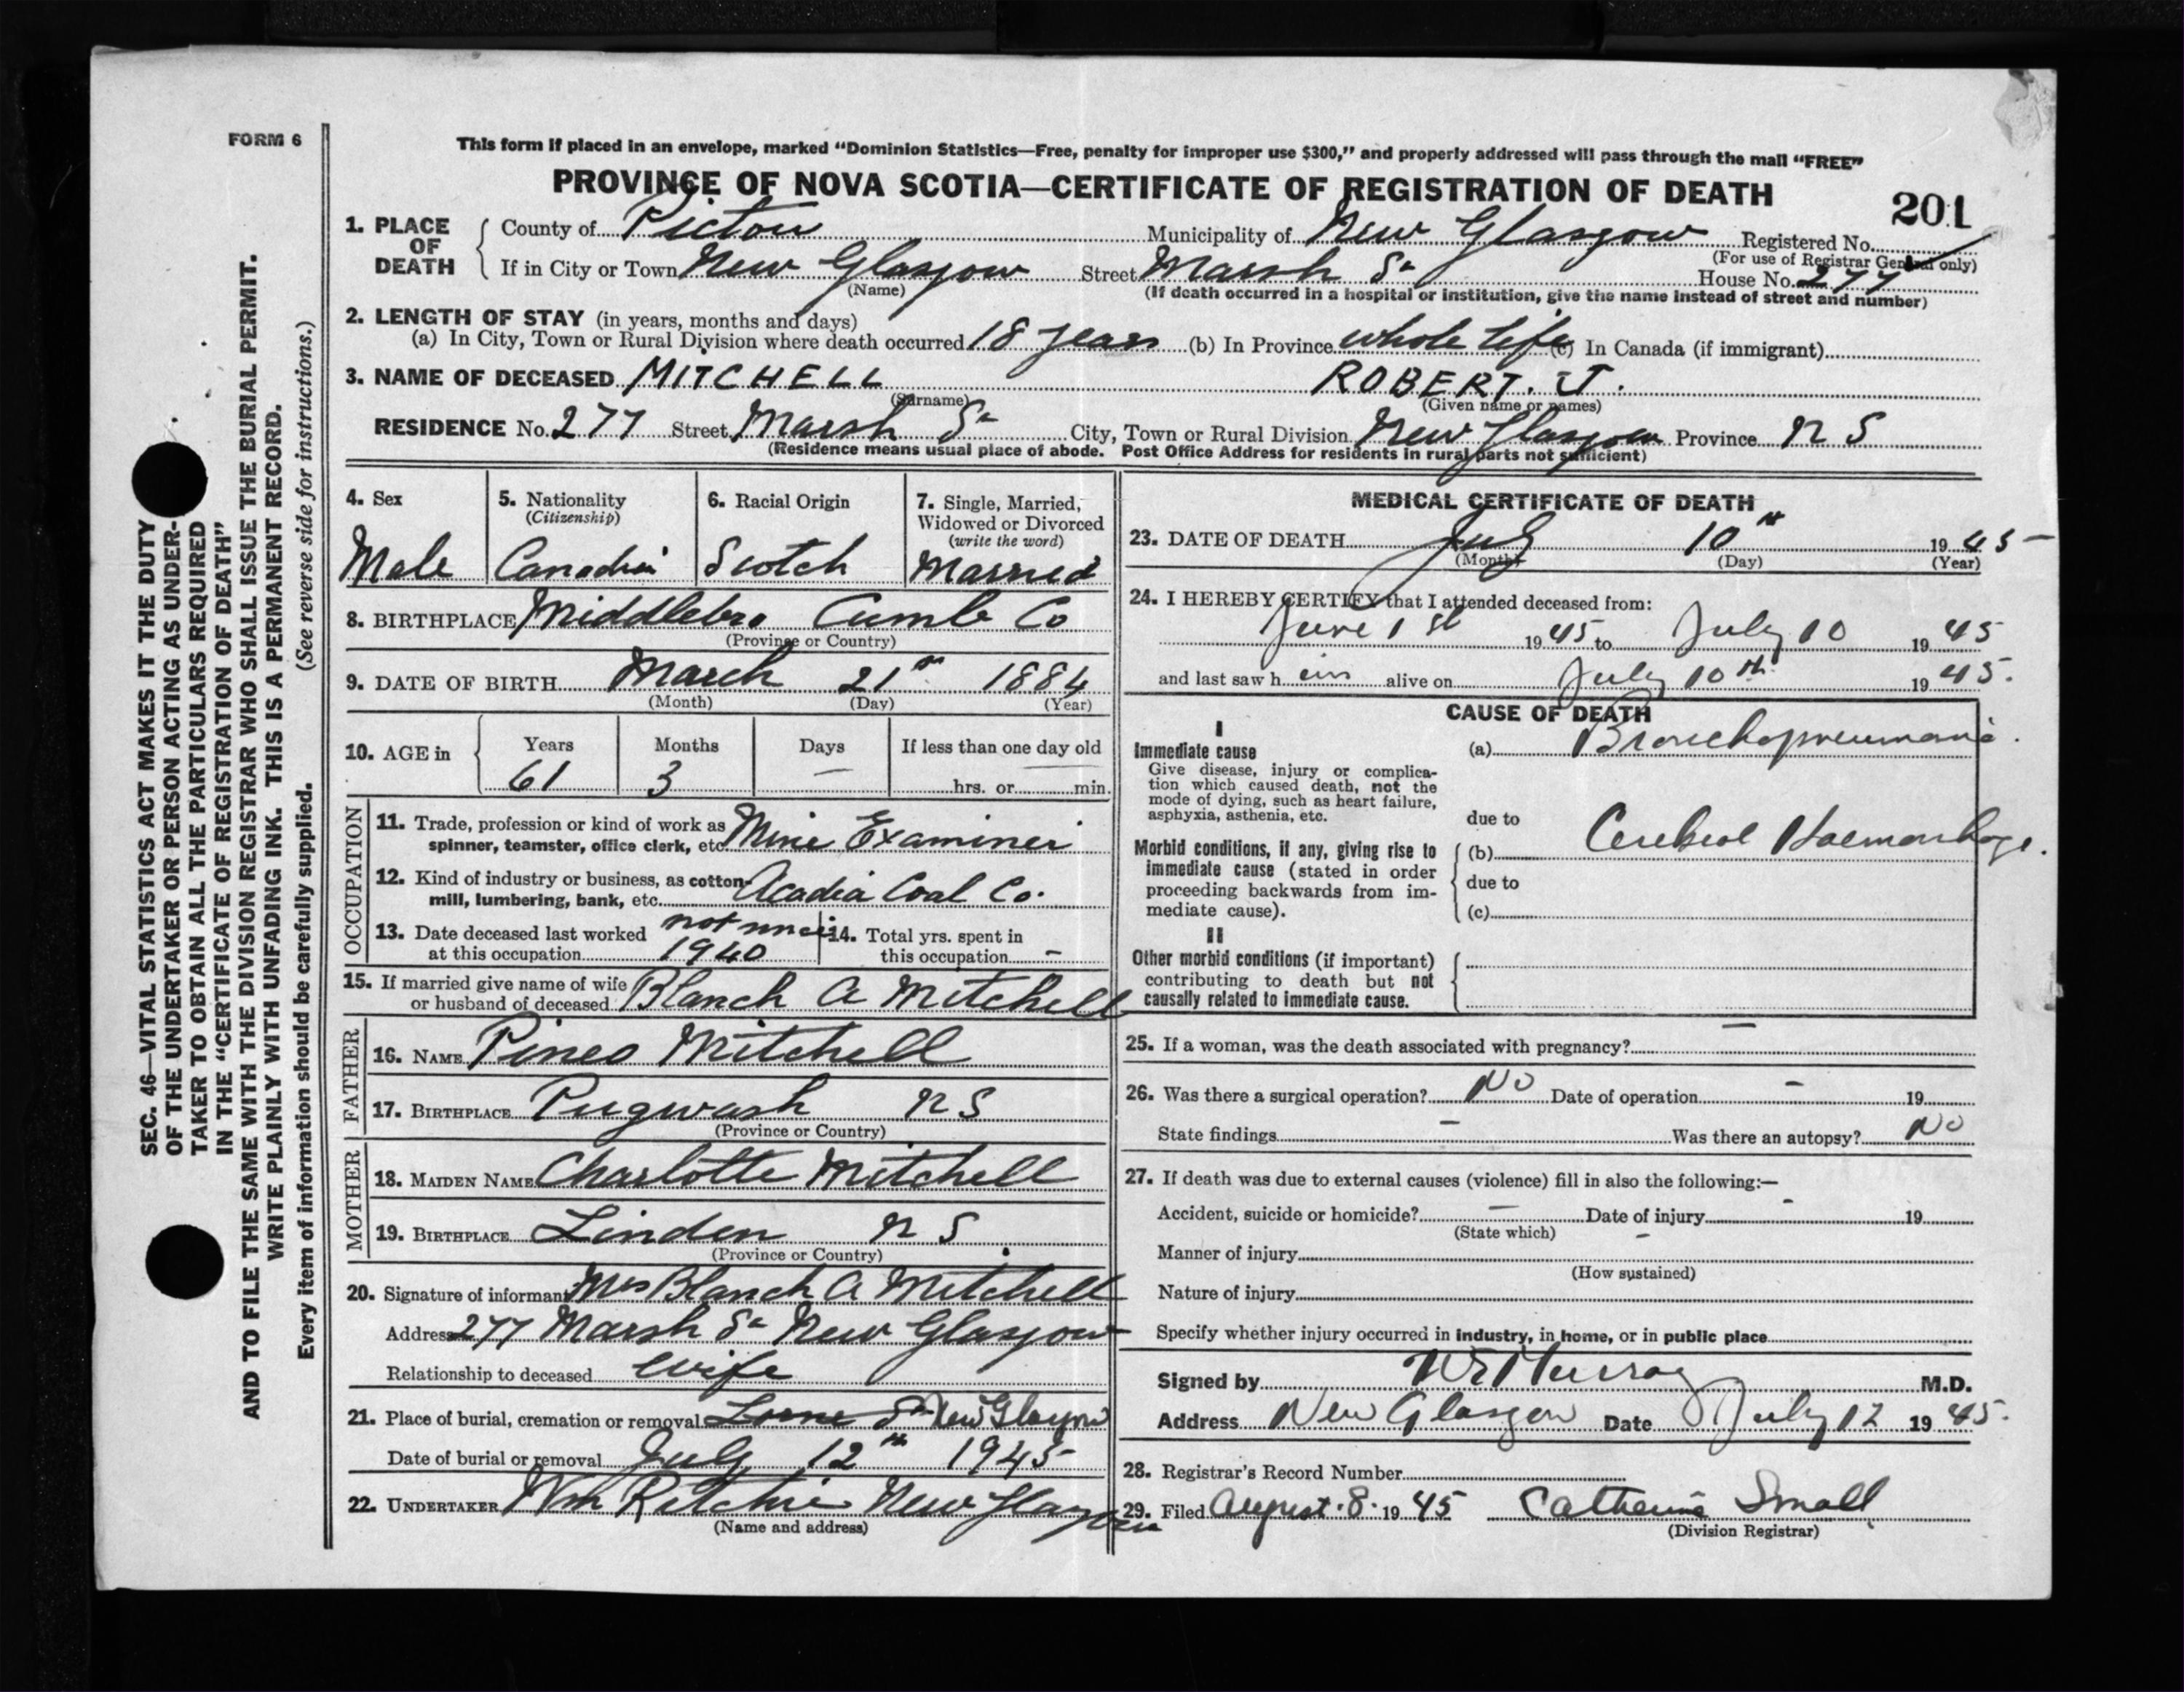 FORM 6
This form if placed in an envelope, marked "Dominion Statistics—Free, penalty for improper use $300," and properly addressed will pass through the mail "FREE"
PROVINCE OF NOVA SCOTIA—CERTIFICATE OF REGISTRATION OF DEATH
201
1. PLACE OF DEATH County of Pictou Municipality of New Glasgow Registered No.
(For use of Registrar General only)
If in City or Town New Glasgow Street Marsh St House No. 277
(Name) (If death occurred in a hospital or institution, give the name instead of street and number)
2. LENGTH OF STAY (in years, months and days)
(a) In City, Town or Rural Division where death occurred 18 years (b) In Province whole life (c) In Canada (if immigrant)
3. NAME OF DECEASED MITCHELL ROBERT. J.
(Surname) (Given name or names)
RESIDENCE No. 277 Street Marsh St City, Town or Rural Division New Glasgow Province N S
(Residence means usual place of abode. Post Office Address for residents in rural parts not sufficient)
4. Sex
Male
5. Nationality
(Citizenship)
Canadian
6. Racial Origin
Scotch
7. Single, Married, Widowed or Divorced
(write the word)
Married
8. BIRTHPLACE Middlebro Cumb Co
(Province or Country)
9. DATE OF BIRTH March 21st 1884
(Month) (Day) (Year)
10. AGE in Years Months Days If less than one day old
61 3 — hrs. or min.
OCCUPATION
11. Trade, profession or kind of work as Mine Examiner
spinner, teamster, office clerk, etc.
12. Kind of industry or business, as cotton- Acadia Coal Co.
mill, lumbering, bank, etc.
13. Date deceased last worked not since 14. Total yrs. spent in
at this occupation 1940 this occupation –
15. If married give name of wife
or husband of deceased Blanch A Mitchell
FATHER
16. NAME Pineo Mitchell
17. BIRTHPLACE Pugwash N S
(Province or Country)
MOTHER
18. MAIDEN NAME Charlotte Mitchell
19. BIRTHPLACE Linden N S.
(Province or Country)
20. Signature of informant Mrs Blanch A Mitchell
Address 277 Marsh St New Glasgow
Relationship to deceased wife
21. Place of burial, cremation or removal Lorne St New Glasgow
Date of burial or removal July 12th 1945
22. UNDERTAKER Wm Ritchie New Glasgow
(Name and address)
MEDICAL CERTIFICATE OF DEATH
23. DATE OF DEATH July 10th 1945
(Month) (Day) (Year)
24. I HEREBY CERTIFY that I attended deceased from:
June 1st 1945 to July 10 1945
and last saw him alive on July 10th 1945.
CAUSE OF DEATH
I
Immediate cause (a) Bronchopneumonia.
Give disease, injury or complica-
tion which caused death, not the
mode of dying, such as heart failure,
asphyxia, asthenia, etc.
due to
Morbid conditions, if any, giving rise to (b) Cerebral Haemorrhage.
immediate cause (stated in order due to
proceeding backwards from im-
mediate cause). (c)
II
Other morbid conditions (if important)
contributing to death but not
causally related to immediate cause.
25. If a woman, was the death associated with pregnancy? —
26. Was there a surgical operation? No Date of operation – 19
State findings – Was there an autopsy? No
27. If death was due to external causes (violence) fill in also the following:—
Accident, suicide or homicide? — Date of injury – 19
(State which)
Manner of injury –
(How sustained)
Nature of injury
Specify whether injury occurred in industry, in home, or in public place
Signed by W E Murray M.D.
Address New Glasgow Date July 12 1945.
28. Registrar's Record Number
29. Filed August. 8. 1945 Catherine Small
(Division Registrar)
SEC. 46—VITAL STATISTICS ACT MAKES IT THE DUTY
OF THE UNDERTAKER OR PERSON ACTING AS UNDER-
TAKER TO OBTAIN ALL THE PARTICULARS REQUIRED
IN THE "CERTIFICATE OF REGISTRATION OF DEATH"
AND TO FILE THE SAME WITH THE DIVISION REGISTRAR WHO SHALL ISSUE THE BURIAL PERMIT.
WRITE PLAINLY WITH UNFADING INK. THIS IS A PERMANENT RECORD.
Every item of information should be carefully supplied. (See reverse side for instructions.)